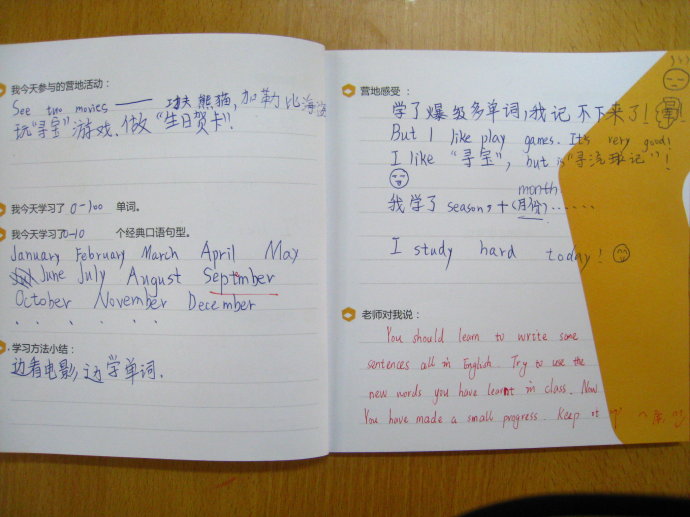 我今天参与的营地活动:
See two movies —— 功夫熊猫,加勒比海盗
玩"寻宝"游戏、做"生日贺卡"!
我今天学习了 0-100 单词。
我今天学习了0-10 个经典口语句型。
January February March April May
June July August Septmber
October November December
. . . . . .
学习方法小结:
边看电影,边学单词.
营地感受:
学了爆级多单词,我记不下来了!
But I like play games. It's very good!
I like "寻宝", but is "寻 球记"!
month
我学了 season, 十(月份)......
I study hard today!
老师对我说:
You should learn to write some
sentences all in English. Try to use the
new words you have learnt in class. Now
You have made a small progress. Keep it